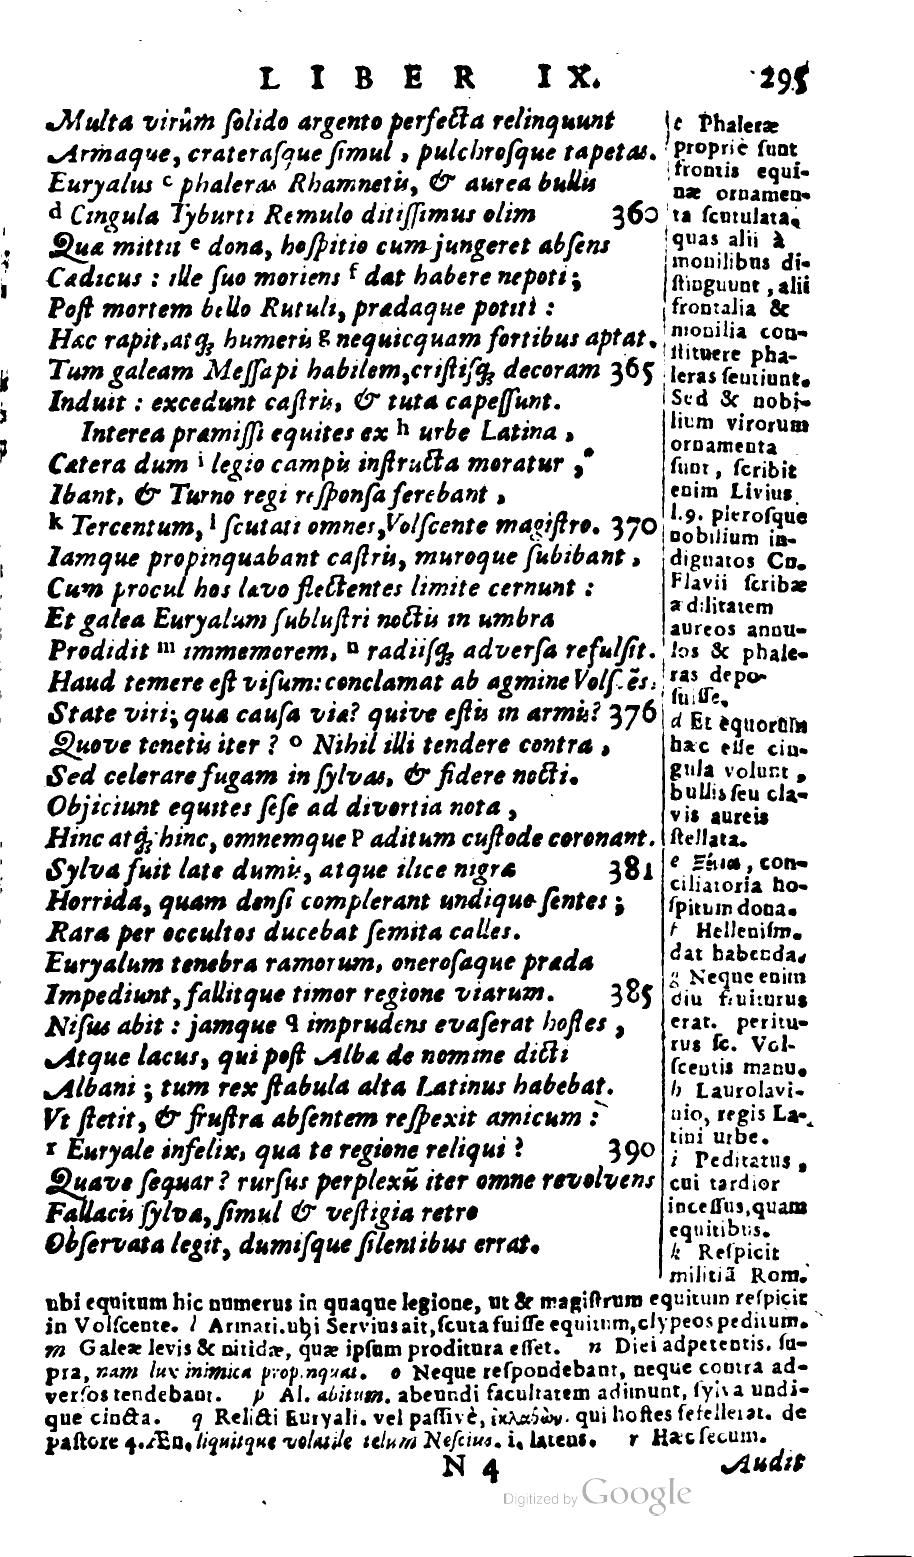 LIBER IX. 295
Multa virûm ſolido argento perfecta relinquunt
Armaque, crateraſque ſimul, pulchroſque tapetas.
Euryalus c phaleras Rhamnetis, & aurea bullis
d Cingula Tyburti Remulo ditiſſimus olim 360
Quæ mittit e dona, hoſpitio cum jungeret abſens
Cædicus : ille ſuo moriens f dat habere nepoti;
Poſt mortem bello Rutuli, prædaque potiti :
Hæc rapit, atq; humeris g nequicquam fortibus aptat.
Tum galeam Meſſapi habilem, criſtiſq; decoram 365
Induit : excedunt caſtris, & tuta capeſſunt.
Interea præmiſſi equites ex h urbe Latina,
Cætera dum i legio campis inſtructa moratur,
Ibant, & Turno regi reſponſa ferebant,
k Tercentum, l ſcutati omnes, Volſcente magiſtro. 370
Iamque propinquabant caſtris, muroque ſubibant,
Cum procul hos lævo flectentes limite cernunt :
Et galea Euryalum ſubluſtri noctis in umbra
Prodidit m immemorem, n radiiſq; adverſa refulſit.
Haud temere eſt viſum: conclamat ab agmine Volſcẽs:
State viri; quæ cauſa viæ? quive eſtis in armis? 376
Quove tenetis iter ? o Nihil illi tendere contra,
Sed celerare fugam in ſylvas, & fidere nocti.
Objiciunt equites ſeſe ad divortia nota,
Hinc atq; hinc, omnemque p aditum cuſtode coronant.
Sylva fuit late dumis, atque ilice nigra 381
Horrida, quam denſi complerant undique ſentes ;
Rara per occultos ducebat ſemita calles.
Euryalum tenebræ ramorum, oneroſaque præda
Impediunt, fallitque timor regione viarum. 385
Niſus abit : jamque q imprudens evaſerat hoſtes,
Atque lacus, qui poſt Albæ de nomine dicti
Albani ; tum rex ſtabula alta Latinus habebat.
Vt ſtetit, & fruſtra abſentem reſpexit amicum :
r Euryale infelix, qua te regione reliqui ? 390
Quave ſequar ? rurſus perplexũ iter omne revolvens
Fallacis ſylvæ, ſimul & veſtigia retro
Obſervata legit, dumiſque ſilentibus errat.
c Phaleræ
propriè ſunt
frontis equi-
næ ornamen-
ta ſcutulata,
quas alii à
monilibus di-
ſtinguunt, alii
frontalia &
monilia con-
ſtituere pha-
leras ſentiunt.
Sed & nobi-
lium virorum
ornamenta
ſunt, ſcribit
enim Livius
l.9. pleroſque
nobilium in-
dignatos Cn.
Flavii ſcribæ
ædilitatem
aureos annu-
los & phale-
ras depo-
ſuiſſe.
d Et equorũm
hæc eſſe cin-
gula volunt,
bullis ſeu cla-
vis aureis
ſtellata.
e Ξένια, con-
ciliatoria ho-
ſpitum dona.
f Helleniſm.
dat habenda.
g Neque enim
diu fruiturus
erat. peritu-
rus ſc. Vol-
ſcentis manu.
h Laurolavi-
nio, regis La-
tini urbe.
i Peditatus,
cui tardior
inceſſus, quam
equitibus.
k Reſpicit
militiã Rom.
ubi equitum hic numerus in quaque legione, ut & magiſtrum equitum reſpicit
in Volſcente. l Armati. ubi Servius ait, ſcuta fuiſſe equitum, clypeos peditum.
m Galeæ levis & nitidæ, quæ ipſum proditura eſſet. n Diei adpetentis. ſu-
pra, nam lux inimica propinquat. o Neque reſpondebant, neque contra ad-
verſos tendebant. p Al. abitum. abeundi facultatem adimunt, ſylva undi-
que cincta. q Relicti Euryali. vel paſſivè, qui hoſtes fefellerat. de
paſtore 4. Æn. liquitque volatile telum Neſcius. i. latens. r Hæc ſecum.
N 4 Audit
Digitized by Google